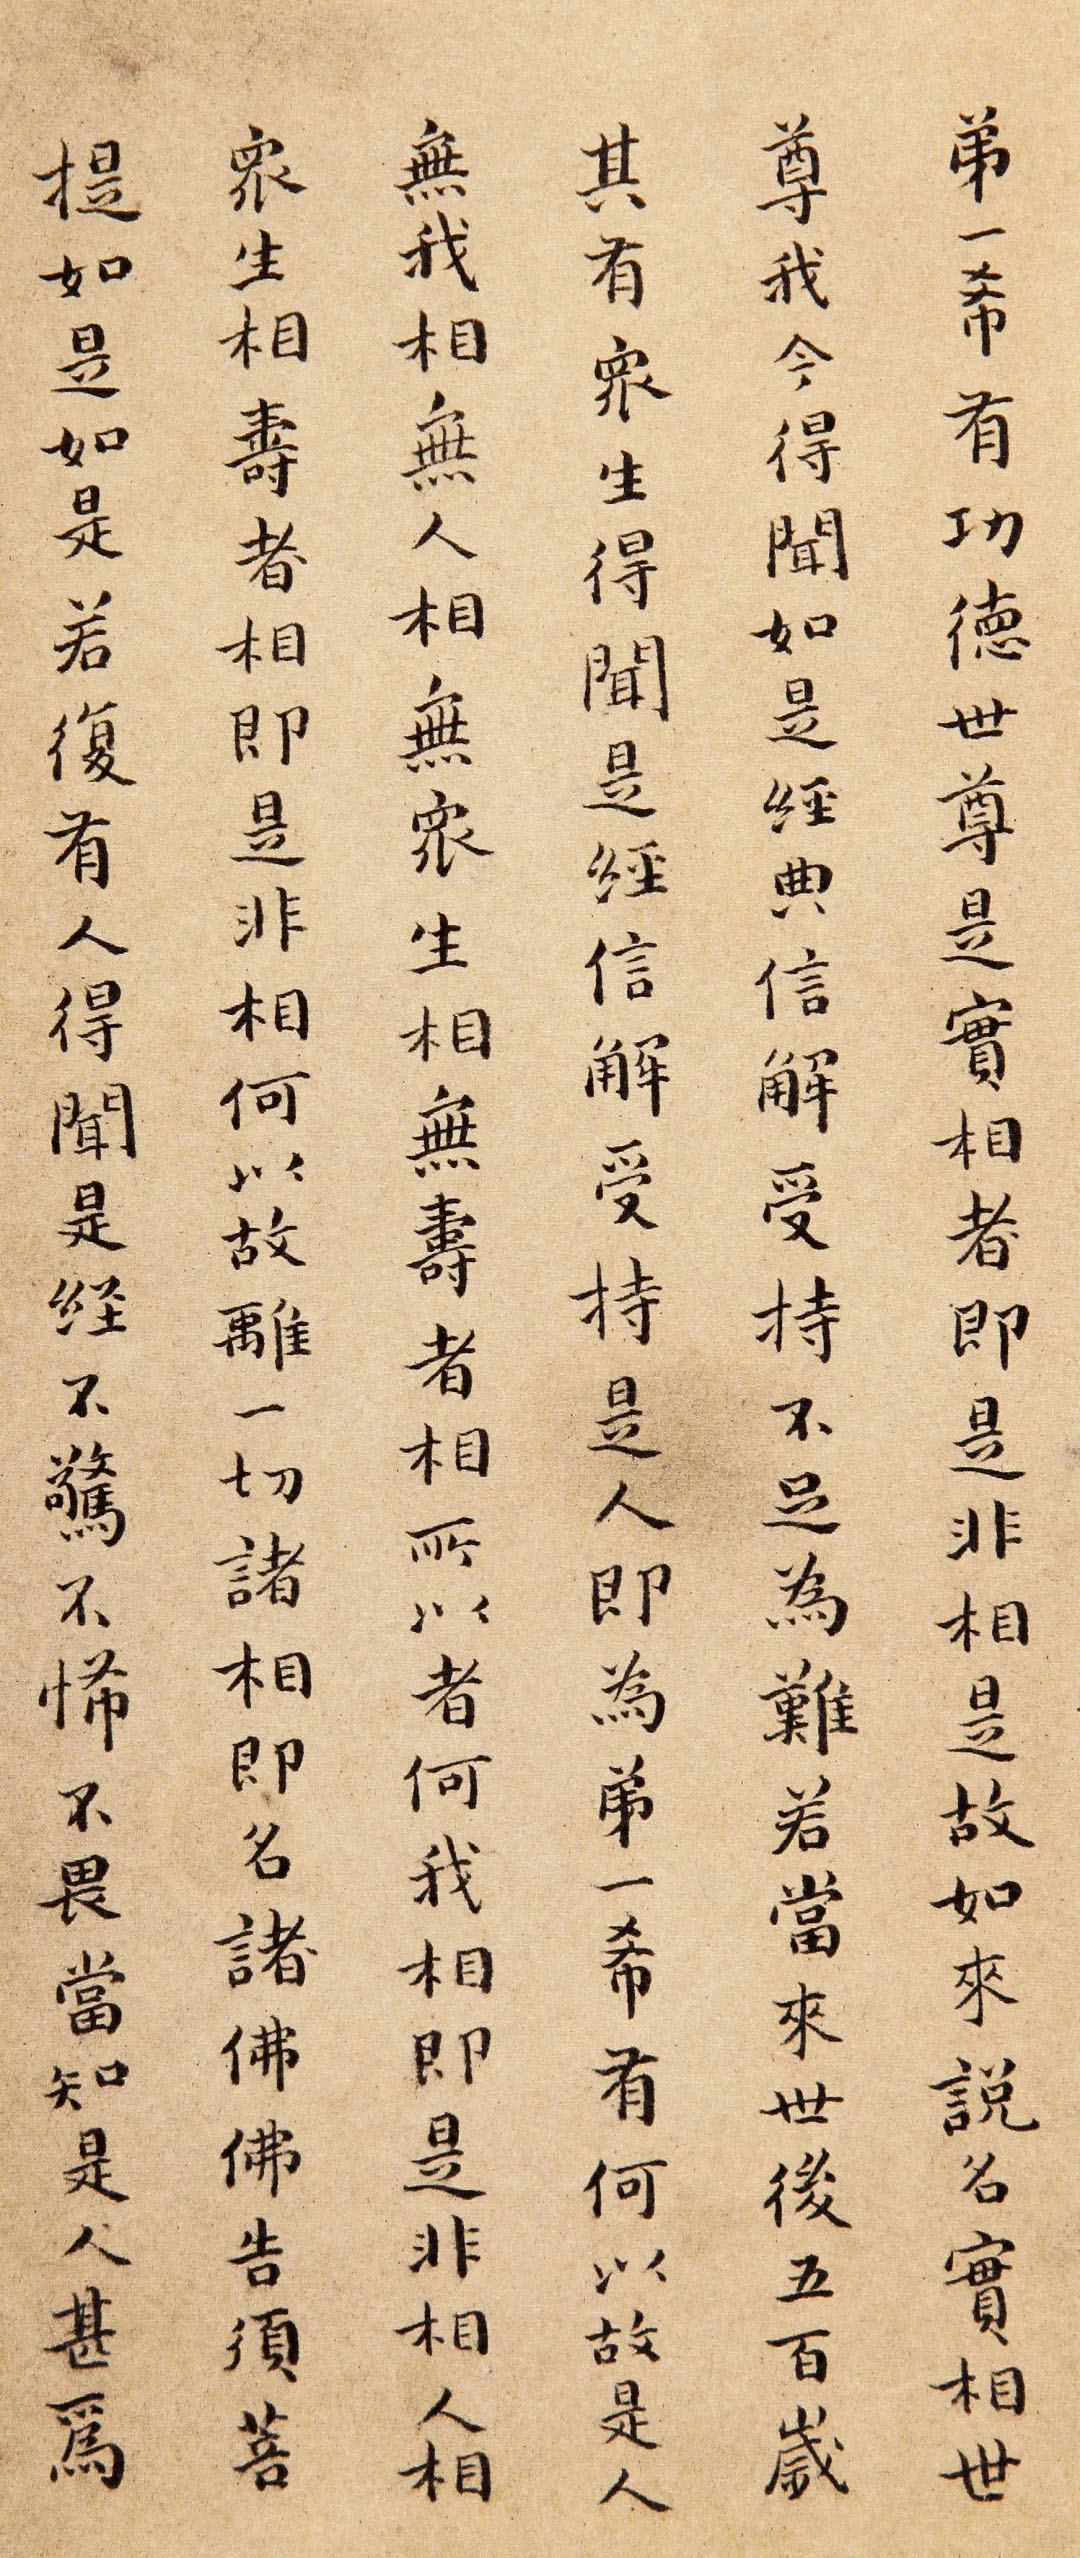 弟一希有功德世尊是實相者即是非相是故如來說名實相世
尊我今得聞如是經典信解受持不足為難若當來世後五百歲
其有眾生得聞是經信解受持是人即為弟一希有何以故是人
無我相無人相無眾生相無壽者相所以者何我相即是非相人相
眾生相壽者相即是非相何以故離一切諸相即名諸佛佛告須菩
提如是如是若復有人得聞是經不驚不怖不畏當知是人甚爲